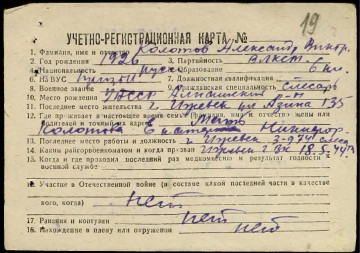 19
УЧЕТНО-РЕГИСТРАЦИОННАЯ КАРТА №
1. Фамилия, имя и отчество Колотов Александр Виктор.
2. Год рождения 1926 3. Партийность ВЛКСМ
4. Национальность русск. Образование 6 кл.
6. № ВУС 7. Должностная квалификация
8. Военное звание Гражданская специальность Слесарь
10. Место рождения УАССР р-н
11. Последнее место жительства г. Ижевск ул Азина 135
12. Где проживает в настоящее время семья (фамилия, имя и отчество жены или
родителей и точный адрес) мать
Колотова
13. Последнее место работы и должность г. Ижевск з-д 74 слесарь
14. Каким райгорвоенкоматом и когда призван Ижевск ГВК 18.5.44
15. Когда и где проходил последний раз медкомиссию и результат годности к
военной службе
16. Участие в Отечественной войне (в составе какой последней части в качестве
кого, когда) нет
17. Ранения и контузии нет
18. Нахождение в плену или окружении нет